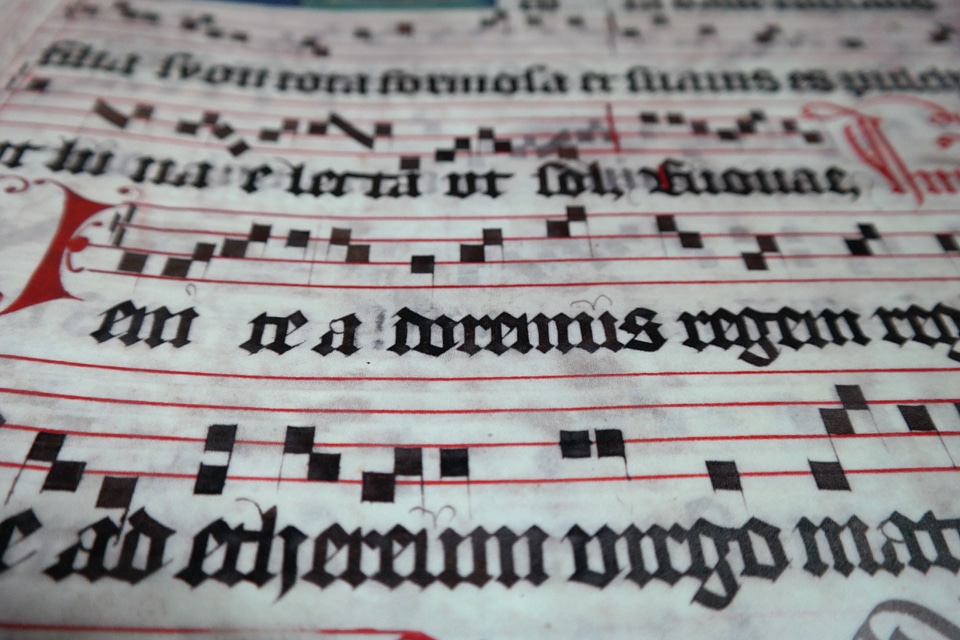 filia syon tota formosa et suauis es
ut lu na e lecta ut sol, Euouae,
eni te a doremus regem reg
ad ethereum uirgo mat